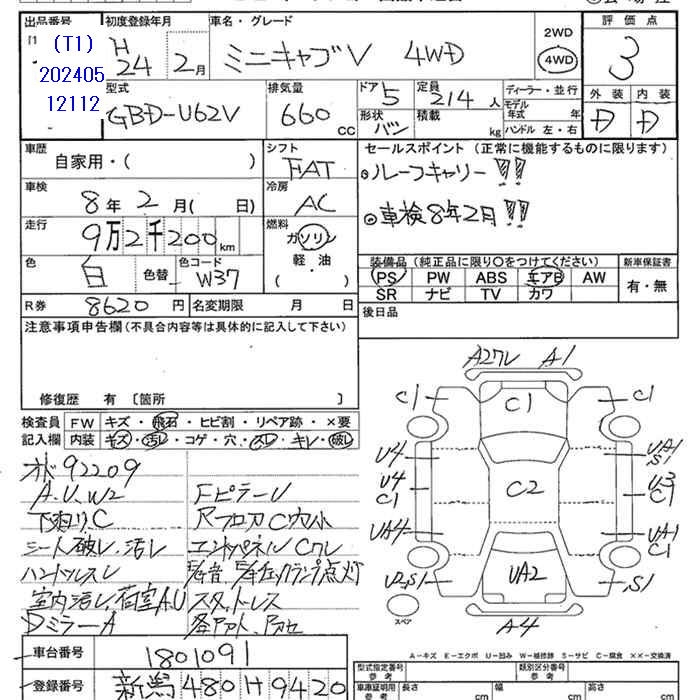 出品番号 初度登録年月 車名・グレード 評価点
(T1)
202405
12112
H 24 2月 ミニキャブV 4WD 2WD 4WD 3
型式 排気量 ドア 5 定員 2/4人 ディーラー・並行 外装 内装
GBD-U62V 660 cc 形状 バン 積載 kg モデル年式 年 D D
ハンドル 左・右
車歴 シフト セールスポイント (正常に機能するものに限ります)
自家用・( ) FAT ◎ルーフキャリー!!
車検 8年 2月( 日) 冷房 AC ◎車検8年2月!!
走行 9万2千200km 燃料 ガソリン 軽・油 ( )
色 白 色替 色コード W37
装備品 (純正品に限り〇をつけてください) 新車保証書
PS PW ABS エアB AW 有・無
SR ナビ TV カワ
R券 8620円 名変期限 月 日 後日品
注意事項申告欄 (不具合内容等は具体的に記入して下さい)
修復歴 有 〔箇所 〕
検査員 FW キズ・飛石・ヒビ割・リペア跡・×要
記入欄 内装 キズ・汚レ・コゲ・穴・スレ・キレ・破レ
オド92209
A.U.W2 FピラーU
下廻りC
シート破レ.汚レ
ハンドルスレ
室内汚レ.荷室A.U
DミラーA
A2ワレ A1
C1 C1 C1
U4 UA1 S1
U4 C1 C2 U3 C1
UA4 UA1 C1
UA2 S1
スペア A4
A-キズ E-エクボ U-凹み W-補修跡 S-サビ C-腐食 XX-交換済
車台番号 1801091
登録番号 新潟480ﾅ9420
型式指定番号 参考 類別区分番号 参考
車庫証明用 参考 長さ cm 幅 cm 高さ cm